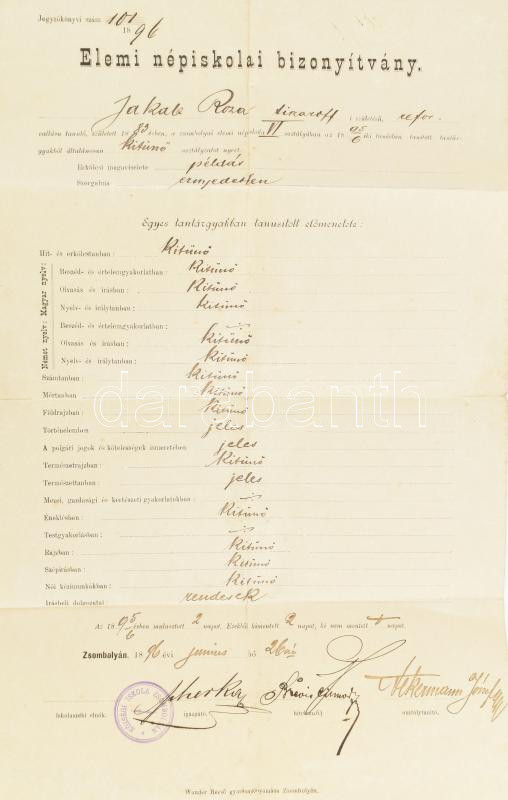 Jegyzőkönyvi szám: 101
18 96
Elemi népiskolai bizonyítvány.
Jakab Roza tiszaroff i születésü, refor-
vallásu tanuló, született 18 83 ében, a zsombolyai elemi népiskola VI osztályában az 18 95/6 iki tanévben tanított tantár-
gyakból általánosan kitünő osztályzatot nyert.
Erkölcsi magaviselete példás
Szorgalma ernyedetlen
Egyes tantárgyakban tanusitott előmenetele:
Hit- és erkölcstanban: Kitünő
Magyar nyelv:
Beszéd- és értelemgyakorlatban: Kitünő
Olvasás és írásban: Kitünő
Nyelv- és irálytanban: kitünő
Német nyelv:
Beszéd- és értelemgyakorlatban:
Olvasás és írásban: Kitünő
Nyelv- és irálytanban: Kitünő
Számtanban: Kitünő
Mértanban: Kitünő
Földrajzban: Kitünő
Történelemben jeles
A polgári jogok és kötelességek ismeretében jeles
Természetrajzban: Kitünő
Természettanban: jeles
Mezei, gazdasági és kertészeti gyakorlatokban:
Éneklésben: Kitünő
Testgyakorlásban:
Rajzban: Kitünő
Szépirásban: Kitünő
Női kézimunkákban: Kitünő
Irásbeli dolgozatai rendesek
Az 18 95/6 évben mulasztott 2 napot. Ezekből kimentett 2 napot, ki nem mentett napot.
Zsombolyán, 18 96 évi junius hó 26án
KÖZSÉGI ISKOLA
Iskolaszéki elnök. igazgató. hitoktató. osztálytanító.
Wunder Rezső gyorssajtónyomása Zsombolyán.
darabanth